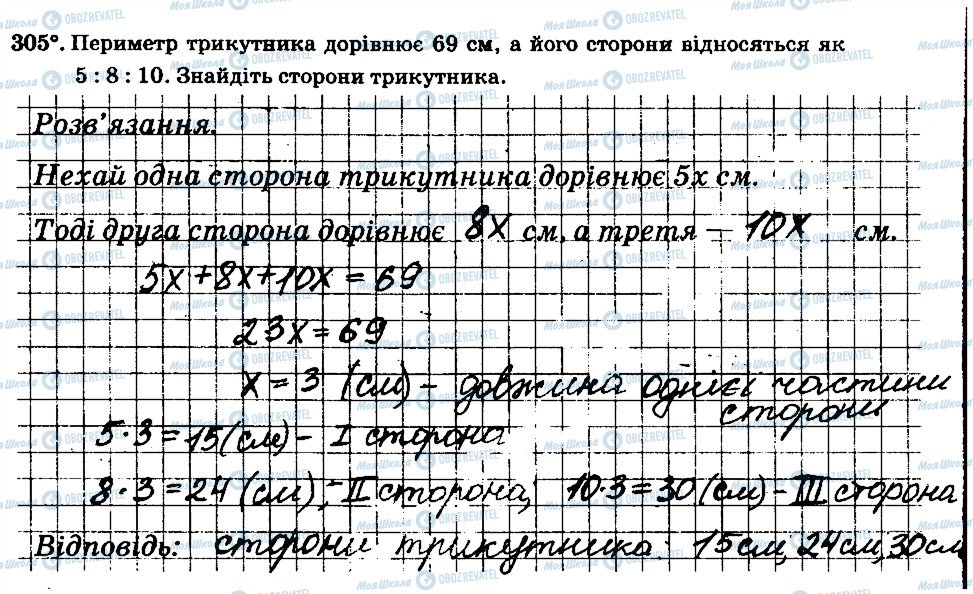 305°. Периметр трикутника дорівнює 69 см, а його сторони відносяться як
5 : 8 : 10. Знайдіть сторони трикутника.
Розв'язання.
Нехай одна сторона трикутника дорівнює 5x см.
Тоді друга сторона дорівнює 8x см, а третя — 10x см.
5x+8x+10x=69
23x=69
x=3 (см) - довжина однієї частини
сторони
5·3=15(см)- I сторона
8·3=24 (см),-II сторона; 10·3=30(см)-III сторона
Відповідь: сторони трикутника 15см, 24см, 30см